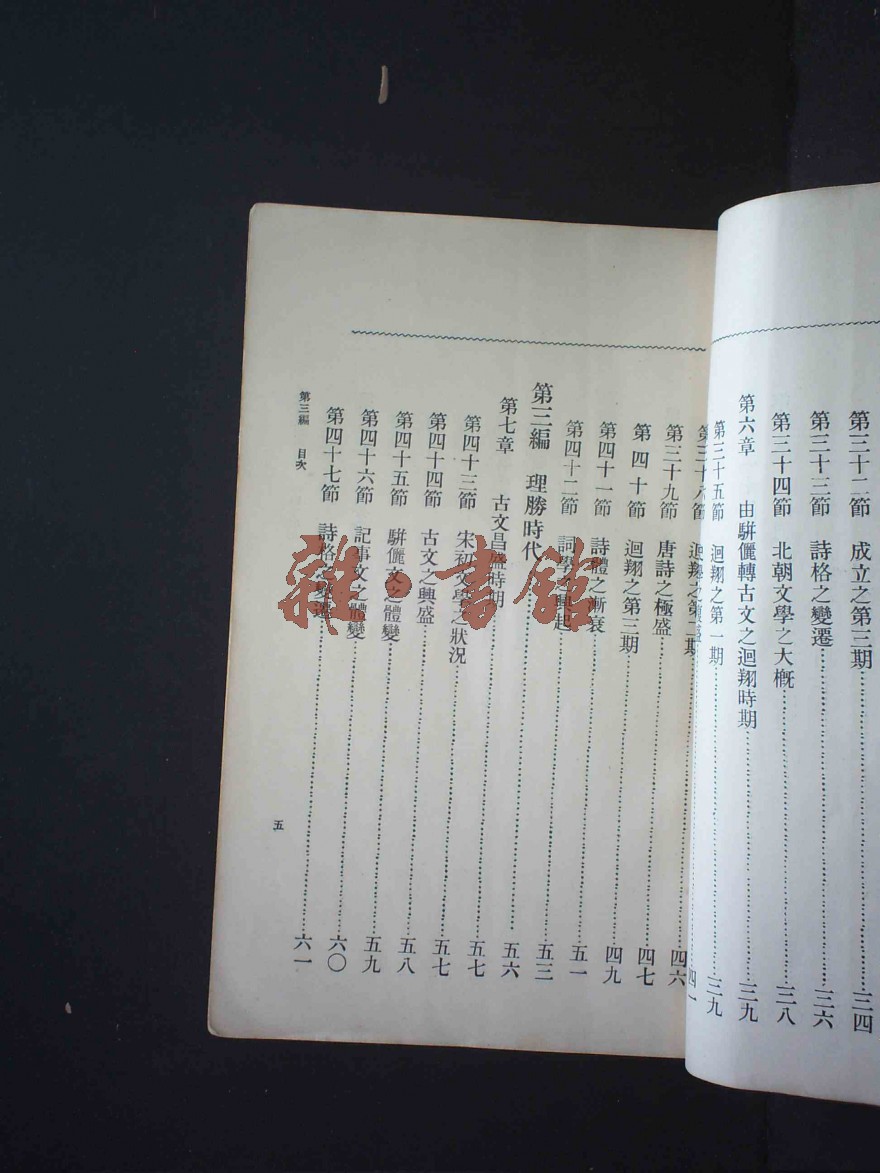 第三十二節 成立之第三期……三四
第三十三節 詩格之變遷……三六
第三十四節 北朝文學之大槪……三八
第六章 由駢儷轉古文之迴翔時期……三九
第三十五節 迴翔之第一期……三九
迴翔之第二期……四六
第三十九節 唐詩之極盛……四七
第四十節 迴翔之第三期……四九
第四十一節 詩體之漸衰……五一
第四十二節 詞學之興起……五三
第三編 理勝時代……五六
第七章 古文昌盛時期……五七
第四十三節 宋初文學之狀況……五七
第四十四節 古文之興盛……五八
第四十五節 駢儷文之體變……五九
第四十六節 記事文之體變……六〇
第四十七節 詩格之變遷……六一
第三編 目次
五
雜·書館